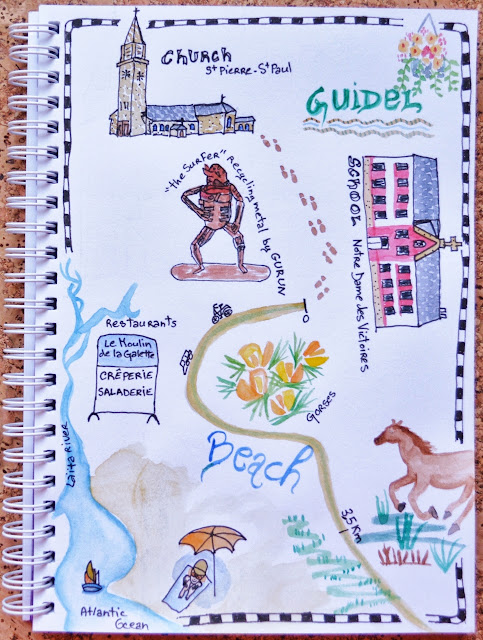 CHURCH
St PIERRE-St PAUL
GUIDEL
"the SURFER" Recycling metal by GURUN
SCHOOL Notre Dame des Victoires
Restaurants
Le Moulin
de la Galette
CRÊPERIE
SALADERIE
GORSES
Beach
Laïta River
3,5 Km
Atlantic
Ocean